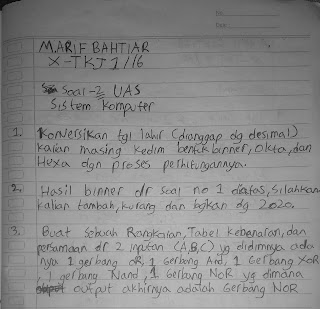 M.ARIF BAHTIAR
X-TKJ 1/16
Soal-2 UAS
Sistem Komputer
1. Konversikan tgl lahir (dianggap dg desimal)
kalian masing kedlm bentk binner, Okta, dan
Hexa dgn proses perhitungannya.
2. Hasil binner dr soal no 1 diatas, silahkan
kalian tambah, kurang dan bgikan dg 2020.
3. Buat sebuah Rangkaian, Tabel kebenaran, dan
persamaan dr 2 inputan (A,B,C) yg didlmnya ada
nya 1 gerbang OR, 1 Gerbang And, 1 Gerbang XOR
, 1 gerbang Nand, 1 Gerbang NOR yg dimana
output akhirnya adalah Gerbang NOR